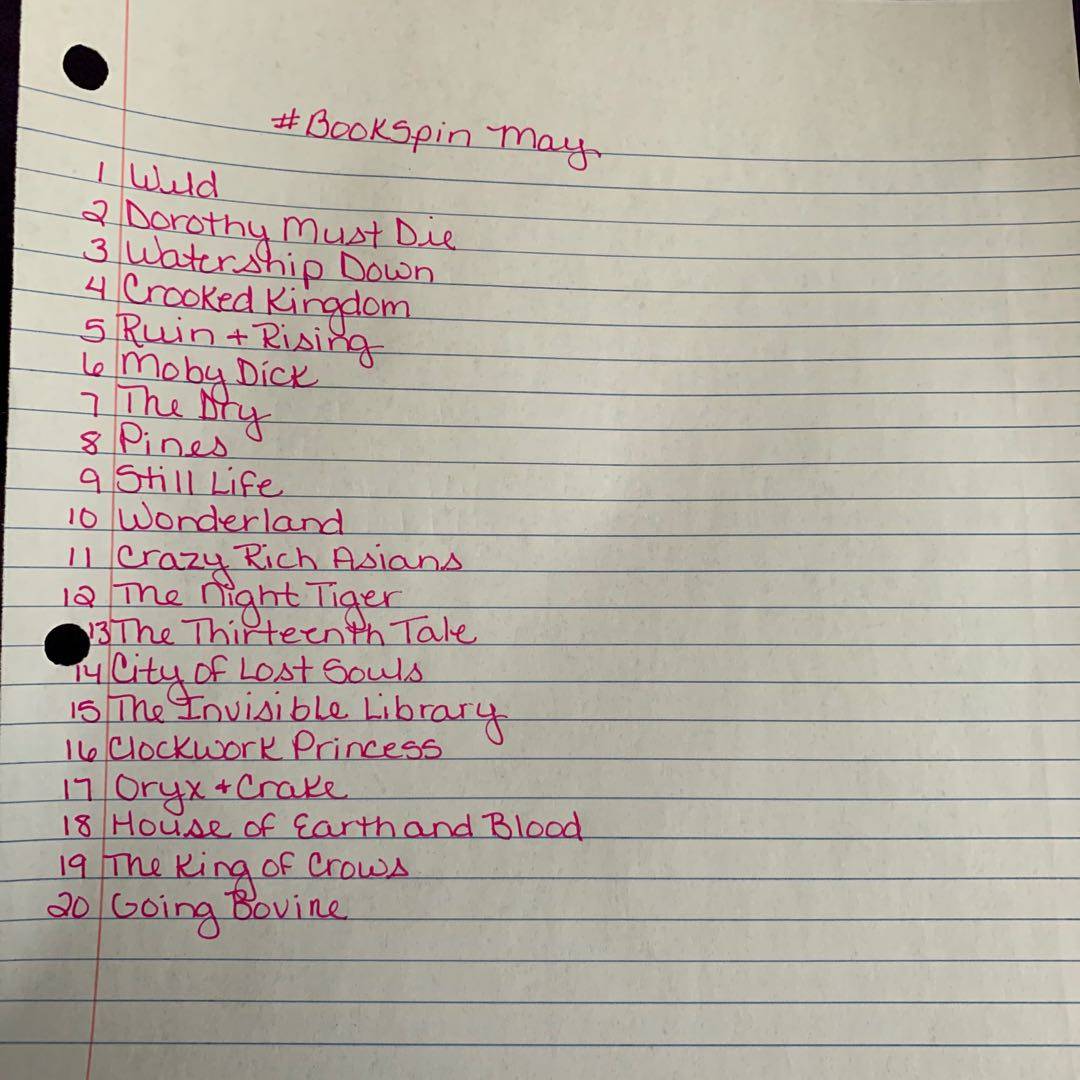 #BookSpin May
1 Wild
2 Dorothy Must Die
3 Watership Down
4 Crooked Kingdom
5 Ruin + Rising
6 Moby Dick
7 The Dry
8 Pines
9 Still Life
10 Wonderland
11 Crazy Rich Asians
12 The Night Tiger
13 The Thirteenth Tale
14 City of Lost Souls
15 The Invisible Library
16 Clockwork Princess
17 Oryx + Crake
18 House of Earth and Blood
19 The King of Crows
20 Going Bovine